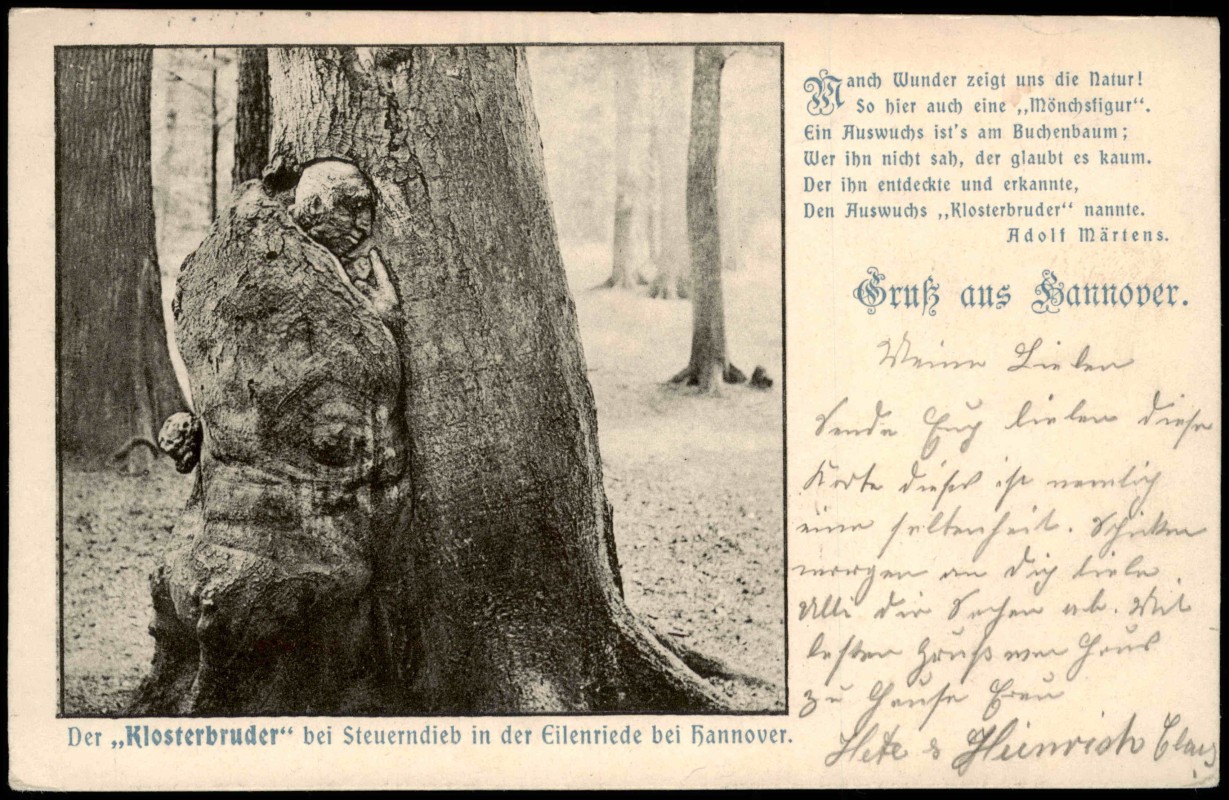 Manch Wunder zeigt uns die Natur!
So hier auch eine „Mönchsfigur“.
Ein Auswuchs ist's am Buchenbaum;
Wer ihn nicht sah, der glaubt es kaum.
Der ihn entdeckte und erkannte,
Den Auswuchs „Klosterbruder“ nannte.
Adolf Märtens.
Gruß aus Hannover.
Meine Lieben
Sende Euch lieben diese
Karte dieses ist nemlich
eine seltenheit. Schicken
morgen an Dich liebe
Alli die Sachen ab. Mit
besten Gruß von Haus
zu Hause Eure
& Heinrich
Der „Klosterbruder“ bei Steuerndieb in der Eilenriede bei Hannover.